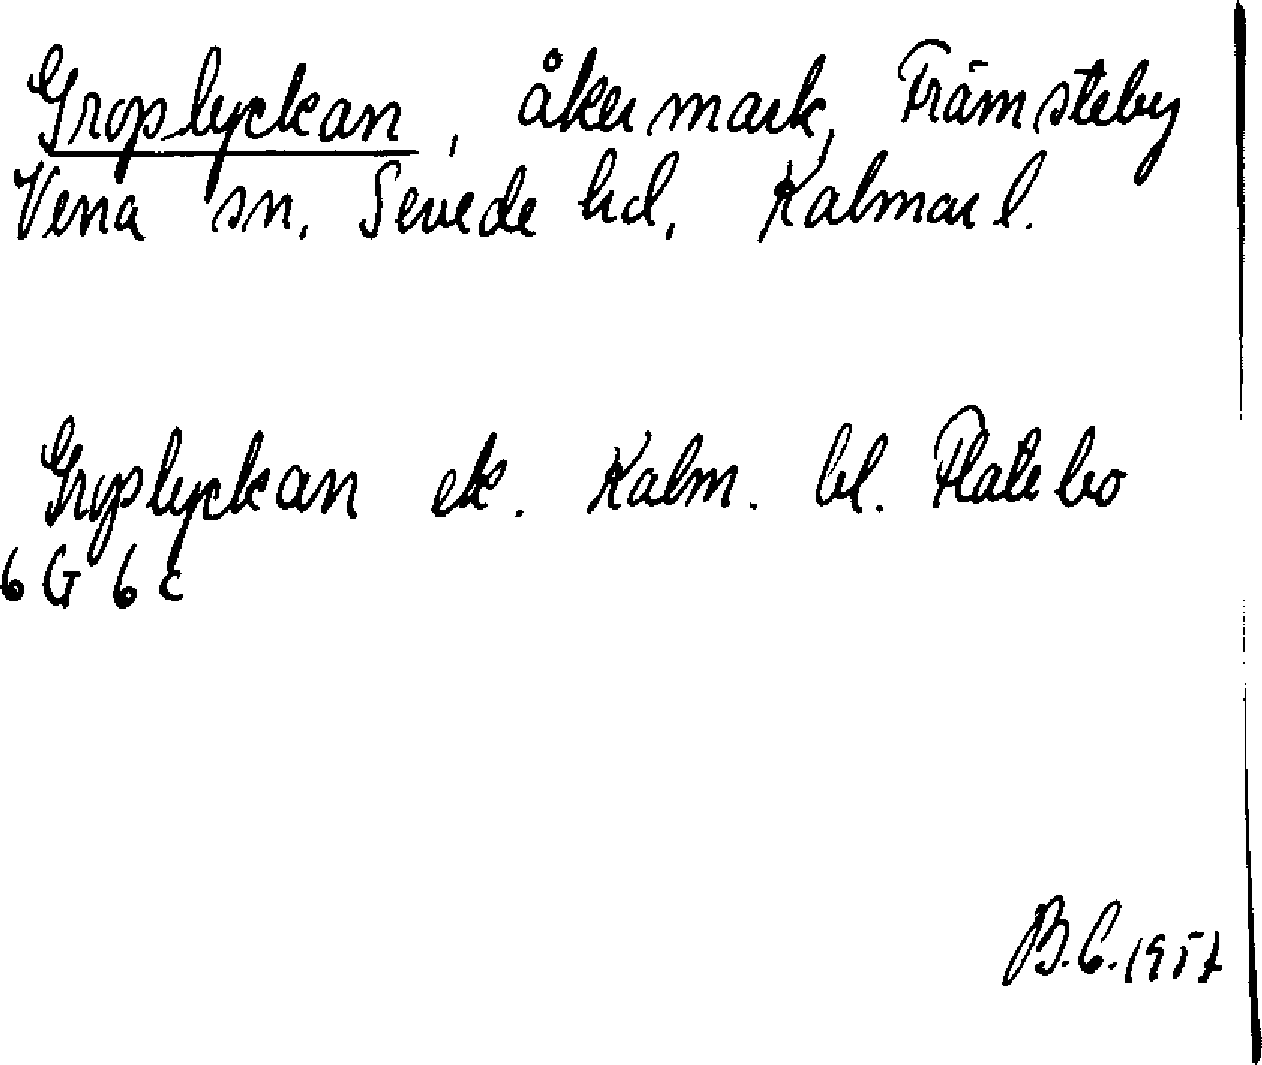 Groplyckan, åkermark, Främsteby
Vena sn, Sevede hd, Kalmar l.
Groplyckan ek. Kalm. bl. Flatebo
6 G 6 c
B.C. 1957